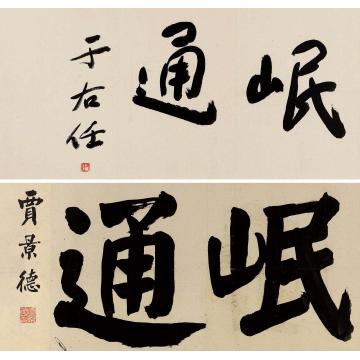 岷通
于右任
岷通
賈景德